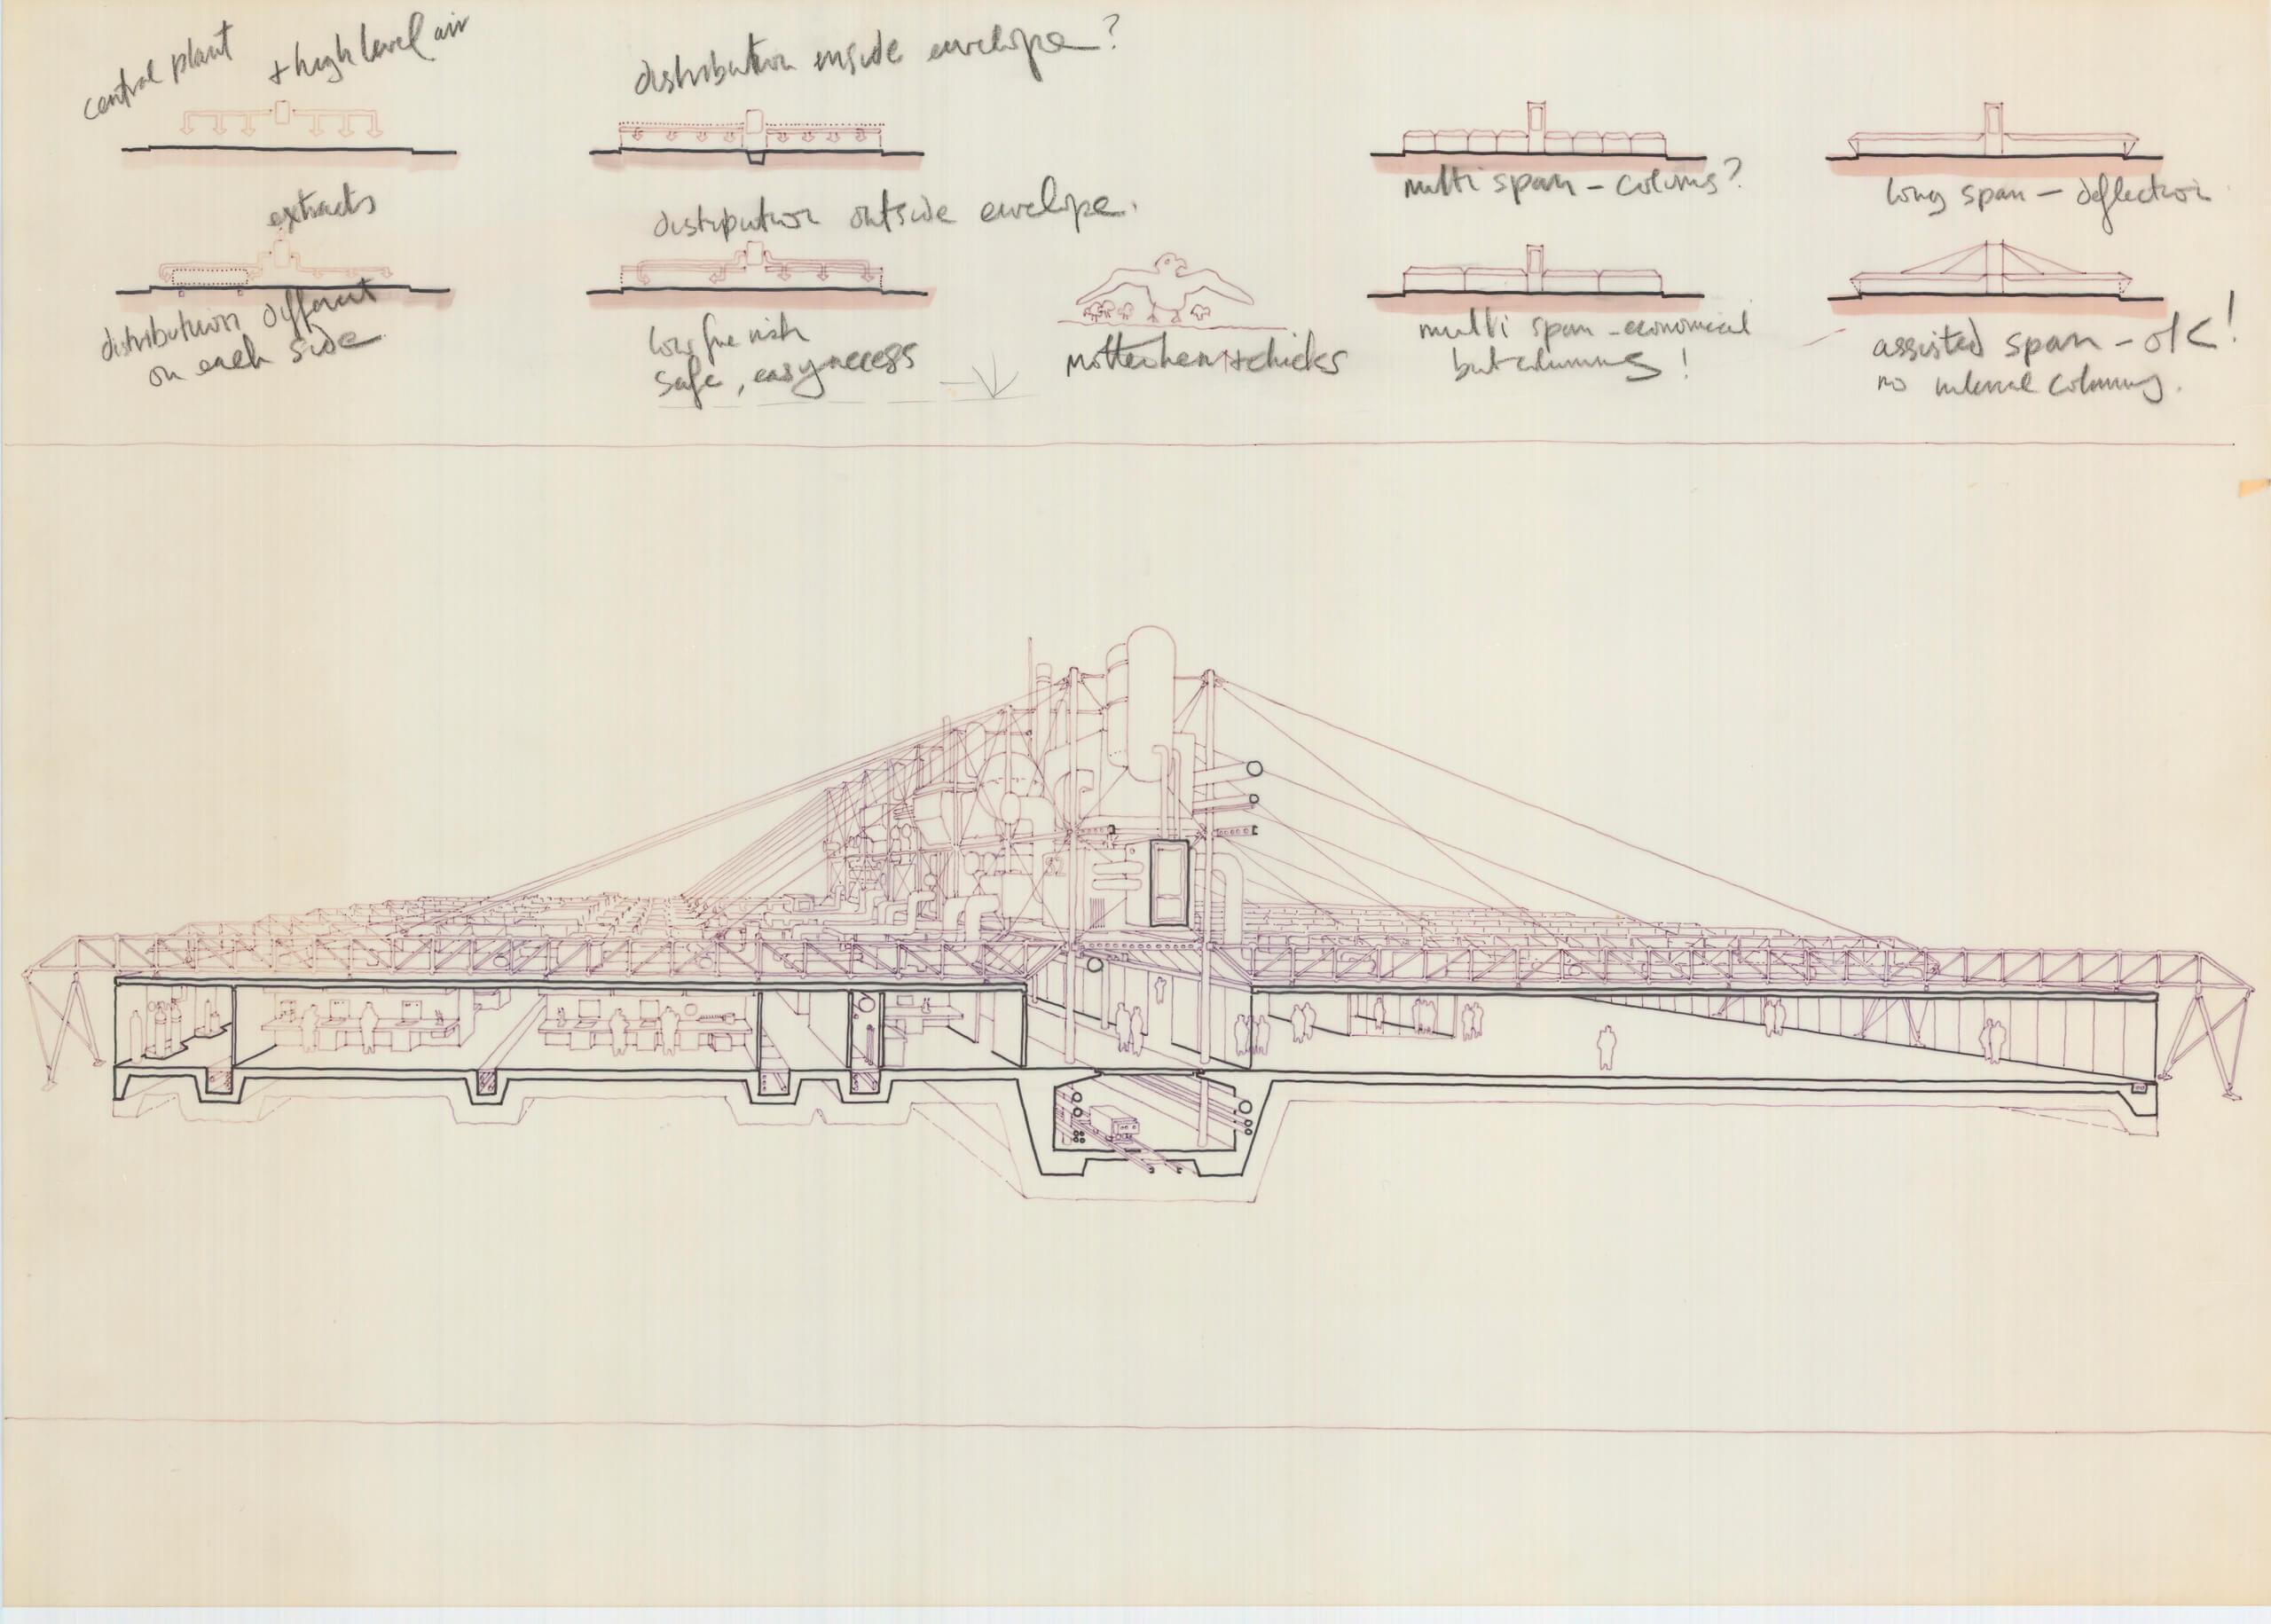 central plant + high level air
extracts
distribution different
on each side
distribution inside envelope?
distribution outside envelope.
low fire risk
safe, easy access
Motherhen + chicks
multi span - colums?
multi span - economical
but columns!
long span - deflection
assisted span - ok!
no internal columns.